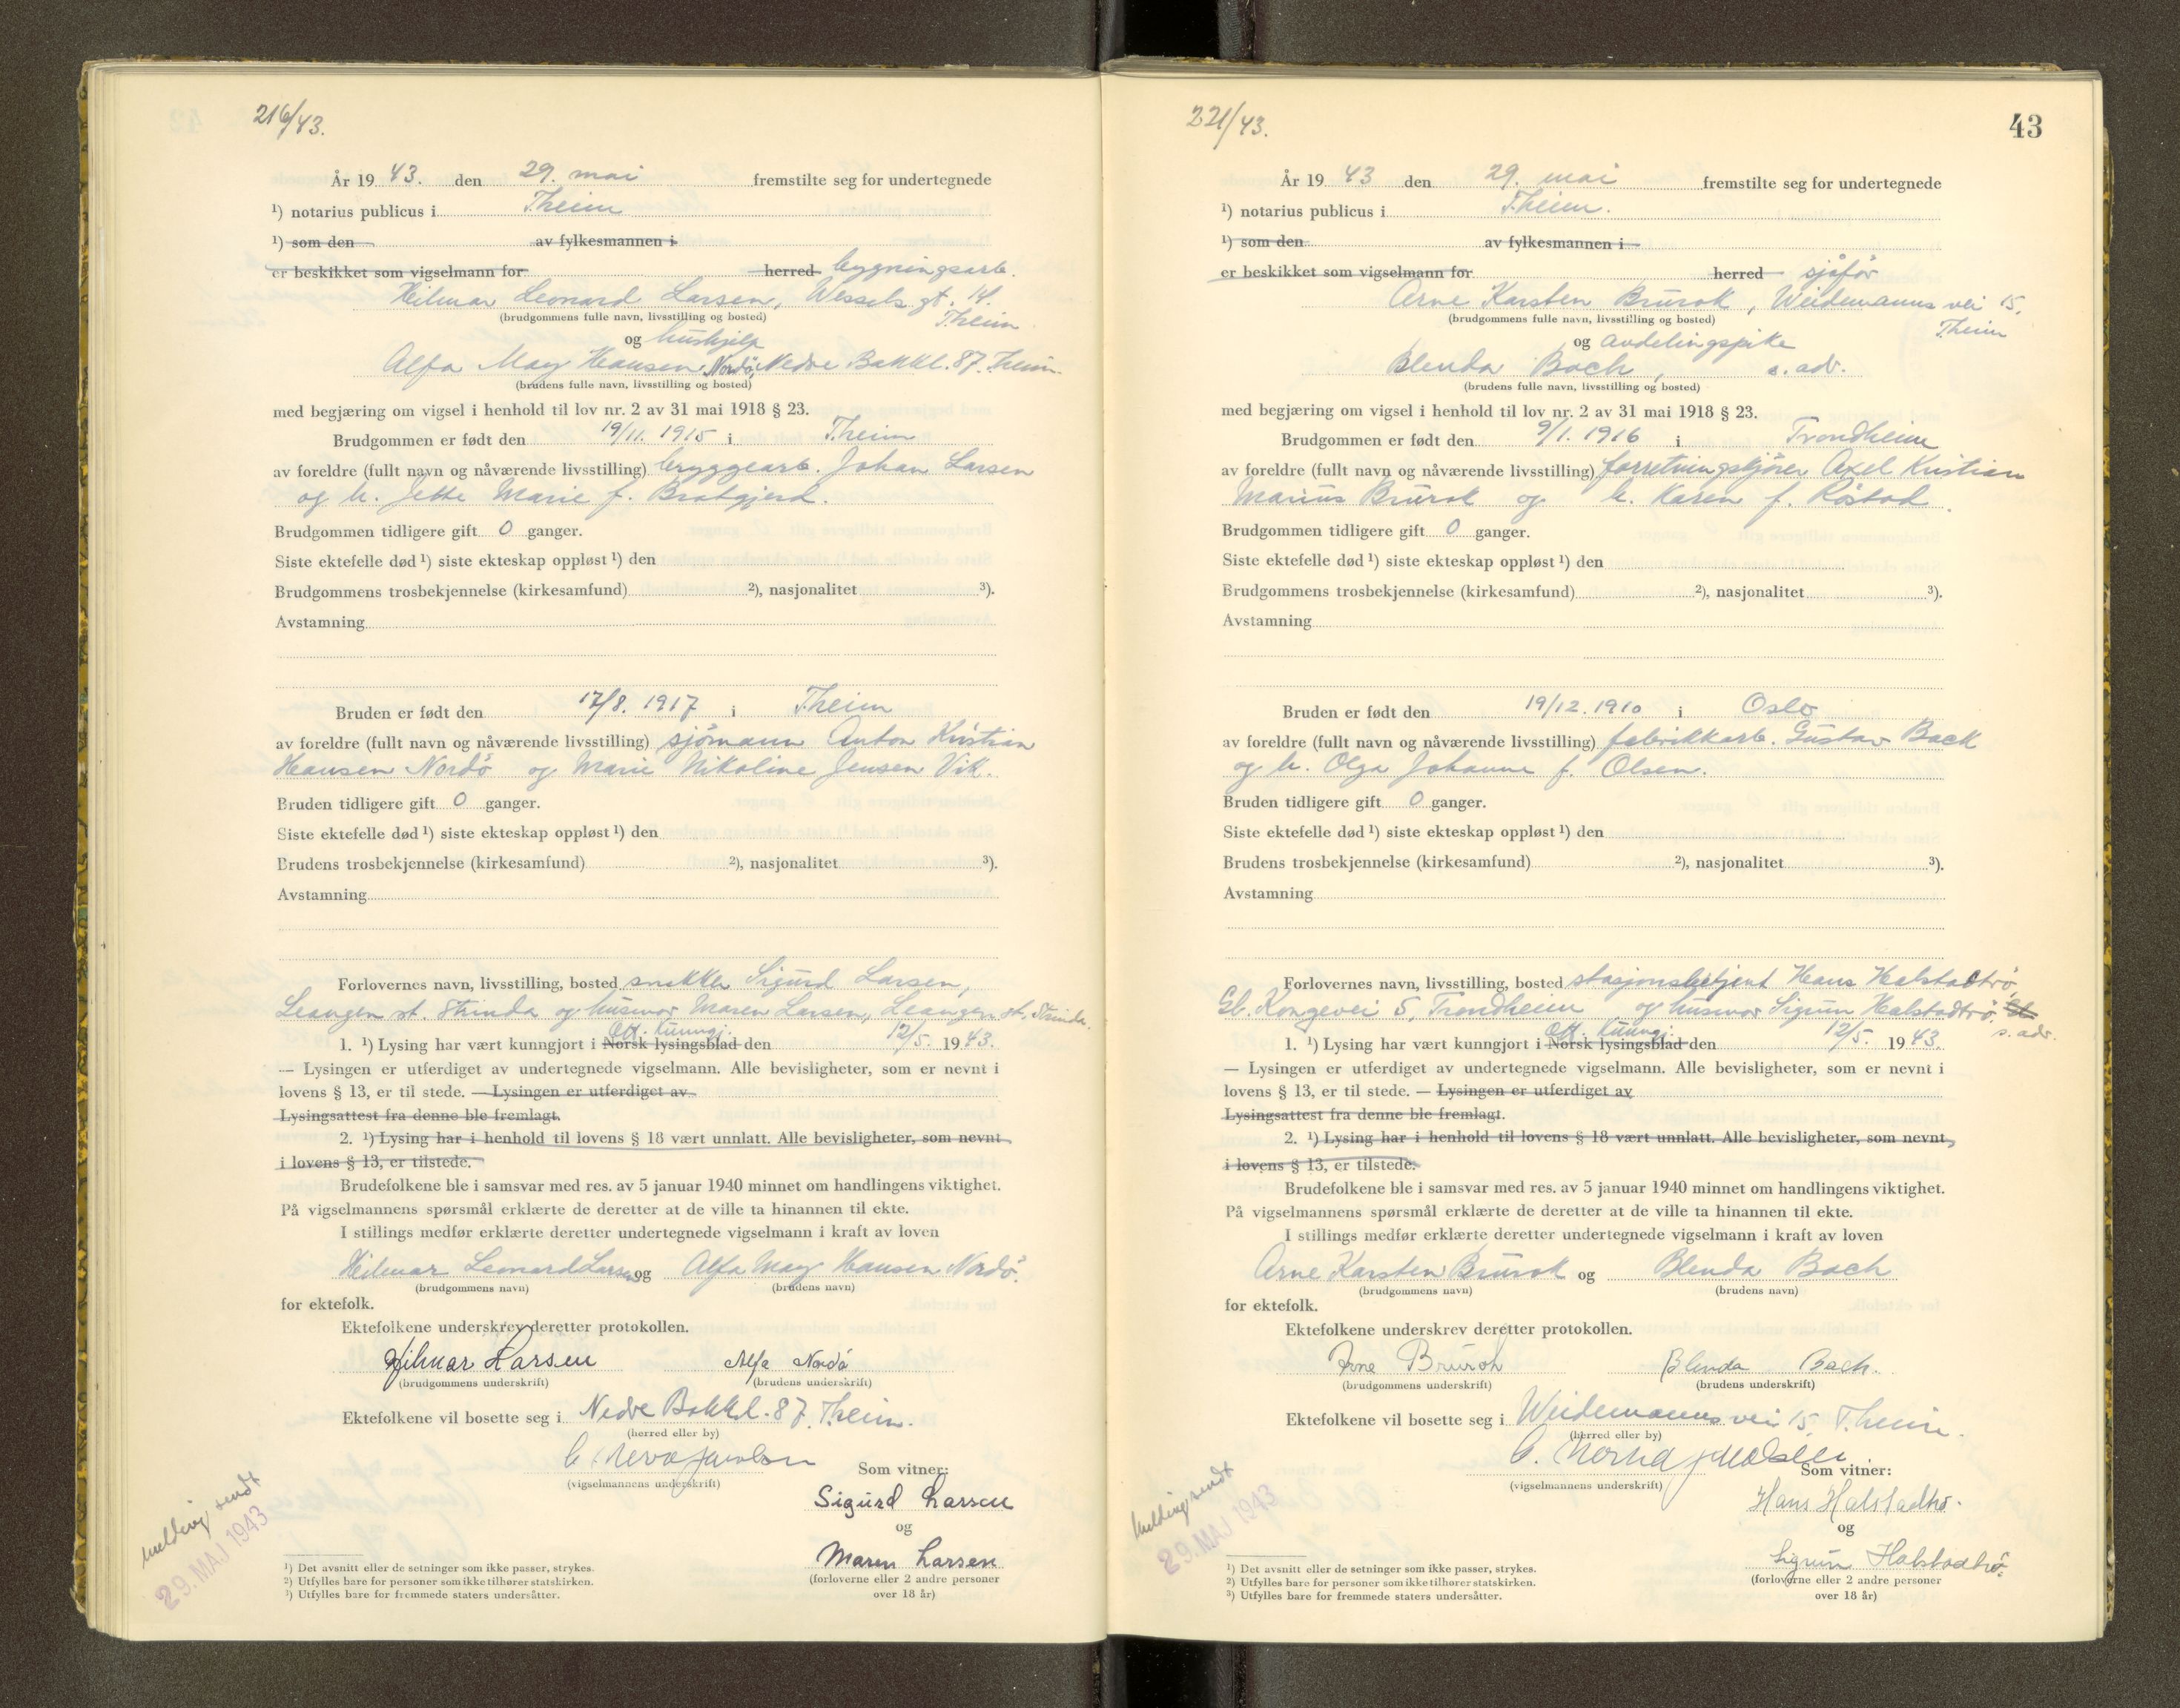 216/43.
År 19 43. den 29. mai fremstilte seg for undertegnede
¹) notarius publicus i T.heim
¹) som den av fylkesmannen i
er beskikket som vigselmann for herred bygningsarb.
Hilmar Leonard Larsen, Wessels gt. 14.
(brudgommens fulle navn, livsstilling og bosted) T.heim
og hushjelp
Alfa May Hansen Nordö, Nedre Bakkl. 87. T.heim.
(brudens fulle navn, livsstilling og bosted)
med begjæring om vigsel i henhold til lov nr. 2 av 31 mai 1918 § 23.
Brudgommen er født den 19/11. 1915 i T.heim
av foreldre (fullt navn og nåværende livsstilling) bryggearb. Johan Larsen
og h. Jette Marie f. Bratgjerd.
Brudgommen tidligere gift 0 ganger.
Siste ektefelle død ¹) siste ekteskap oppløst ¹) den
Brudgommens trosbekjennelse (kirkesamfund) ²), nasjonalitet ³).
Avstamning
Bruden er født den 17/8. 1917 i T.heim
av foreldre (fullt navn og nåværende livsstilling) sjömann Anton Kristian
Hansen Nordö og Marie Nikoline Jensen Vik.
Bruden tidligere gift 0 ganger.
Siste ektefelle død ¹) siste ekteskap oppløst ¹) den
Brudens trosbekjennelse (kirkesamfund) ²), nasjonalitet ³).
Avstamning
Forlovernes navn, livsstilling, bosted snekker Sigurd Larsen,
Leangen st. Strinda og husmor Maren Larsen, Leangen st. Strinda.
Off. kunngj.
1. ¹) Lysing har vært kunngjort i Norsk lysingsblad den 12/5. 19 43.
— Lysingen er utferdiget av undertegnede vigselmann. Alle bevisligheter, som er nevnt i
lovens § 13, er til stede. — Lysingen er utferdiget av
Lysingsattest fra denne ble fremlagt.
2. ¹) Lysing har i henhold til lovens § 18 vært unnlatt. Alle bevisligheter, som nevnt
i lovens § 13, er tilstede.
Brudefolkene ble i samsvar med res. av 5 januar 1940 minnet om handlingens viktighet.
På vigselmannens spørsmål erklærte de deretter at de ville ta hinannen til ekte.
I stillings medfør erklærte deretter undertegnede vigselmann i kraft av loven
Hilmar Leonard Larsen og Alfa May Hansen Nordö.
(brudgommens navn) (brudens navn)
for ektefolk.
Ektefolkene underskrev deretter protokollen.
Hilmar Larsen Alfa Nordö
(brudgommens underskrift) (brudens underskrift)
Ektefolkene vil bosette seg i Nedre Bakkl. 87, T.heim.
(herred eller by)
Som vitner:
(vigselmannens underskrift)
Sigurd Larsen
og
Maren Larsen
(forloverne eller 2 andre personer
over 18 år)
melding sendt
29. MAJ 1943
¹) Det avsnitt eller de setninger som ikke passer, strykes.
²) Utfylles bare for personer som ikke tilhører statskirken.
³) Utfylles bare for fremmede staters undersåtter.
221/43.
43
År 19 43 den 29. mai fremstilte seg for undertegnede
¹) notarius publicus i T.heim.
¹) som den av fylkesmannen i
er beskikket som vigselmann for herred sjåför
Arne Karsten Brurok, Weidemanns vei 15.
(brudgommens fulle navn, livsstilling og bosted) T.heim
og avdelingspike
Blenda Bach, s. adr.
(brudens fulle navn, livsstilling og bosted)
med begjæring om vigsel i henhold til lov nr. 2 av 31 mai 1918 § 23.
Brudgommen er født den 9/1. 1916 i Trondheim
av foreldre (fullt navn og nåværende livsstilling) forretningskjører Axel Kristian
Marius Brurok og h. Karen f. Röstad.
Brudgommen tidligere gift 0 ganger.
Siste ektefelle død ¹) siste ekteskap oppløst ¹) den
Brudgommens trosbekjennelse (kirkesamfund) ²), nasjonalitet ³).
Avstamning
Bruden er født den 19/12. 1910 i Oslo
av foreldre (fullt navn og nåværende livsstilling) fabrikkarb. Gustav Bach
og h. Olga Johanne f. Olsen.
Bruden tidligere gift 0 ganger.
Siste ektefelle død ¹) siste ekteskap oppløst ¹) den
Brudens trosbekjennelse (kirkesamfund) ²), nasjonalitet ³).
Avstamning
Forlovernes navn, livsstilling, bosted stasjonsbetjent Hans Halstadtrö,
Gl. Kongevei 5, Trondheim og husmor Sigrun Halstadtrö,
s. adr.
Off. kunngj.
1. ¹) Lysing har vært kunngjort i Norsk lysingsblad den 12/5. 19 43.
— Lysingen er utferdiget av undertegnede vigselmann. Alle bevisligheter, som er nevnt i
lovens § 13, er til stede. — Lysingen er utferdiget av
Lysingsattest fra denne ble fremlagt.
2. ¹) Lysing har i henhold til lovens § 18 vært unnlatt. Alle bevisligheter, som nevnt
i lovens § 13, er tilstede.
Brudefolkene ble i samsvar med res. av 5 januar 1940 minnet om handlingens viktighet.
På vigselmannens spørsmål erklærte de deretter at de ville ta hinannen til ekte.
I stillings medfør erklærte deretter undertegnede vigselmann i kraft av loven
Arne Karsten Brurok og Blenda Bach
(brudgommens navn) (brudens navn)
for ektefolk.
Ektefolkene underskrev deretter protokollen.
Arne Brurok Blenda Bach.
(brudgommens underskrift) (brudens underskrift)
Ektefolkene vil bosette seg i Weidemanns vei 15, T.heim.
(herred eller by)
Som vitner:
(vigselmannens underskrift)
Hans Halstadtrö.
og
Sigrun Halstadtrö.
(forloverne eller 2 andre personer
over 18 år)
Melding sendt
29. MAJ 1943
¹) Det avsnitt eller de setninger som ikke passer, strykes.
²) Utfylles bare for personer som ikke tilhører statskirken.
³) Utfylles bare for fremmede staters undersåtter.